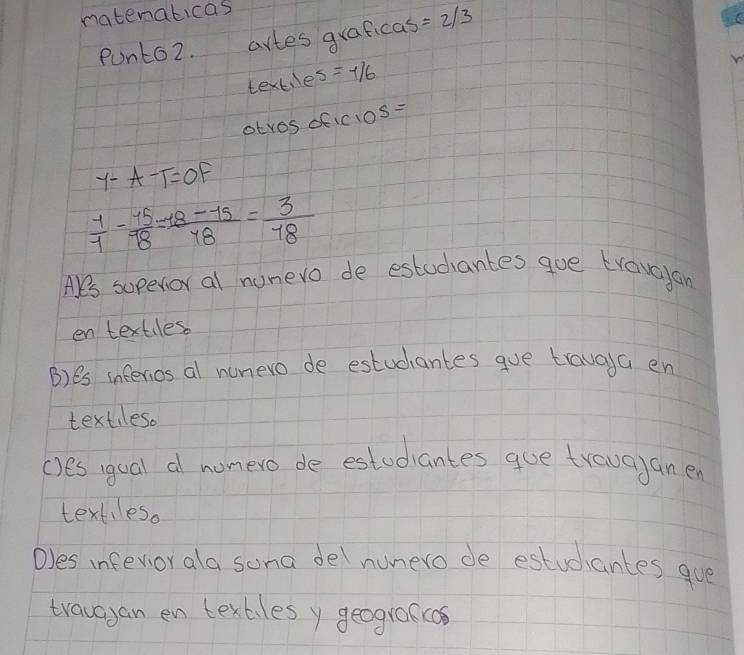 matematicas
Punto 2. artes graficas = 2/3
textiles = 1/6
otros oficios =
1 - A - T = OF
1/1 - 15/18 = 18 - 15/18 = 3/18
A) Es superior al numero de estudiantes que travajan
en textiles.
B) es inferios al numero de estudiantes que travaja en
textiles.
C) es igual al numero de estudiantes que travajan en
textiles.
D) es inferior ala suma del numero de estudiantes que
travajan en textiles y geograficos